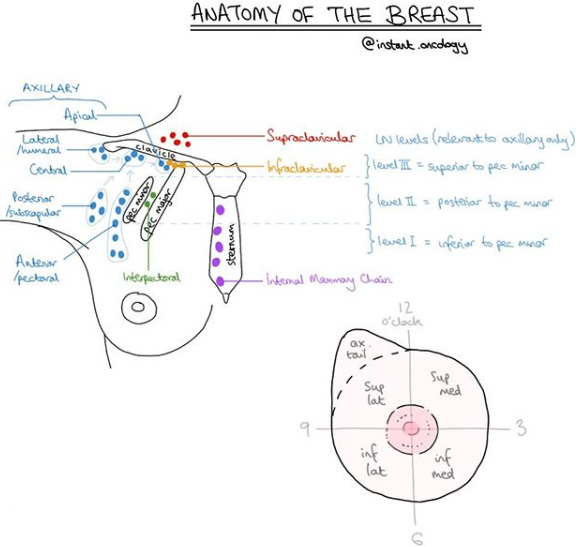 ANATOMY OF THE BREAST
@instant.oncology
AXILLARY
Apical
Lateral
/humeral
Central
Posterior
/subscapular
Anterior
/pectoral
clavicle
pec minor
pec major
Interpectoral
sternum
Supraclavicular
Infraclavicular
Internal Mammary Chain
LN levels (relevant to axillary only)
level III = superior to pec minor
level II = posterior to pec minor
level I = inferior to pec minor
12
o'clock
ax.
tail
Sup
lat
Sup
med
9
3
inf
lat
inf
med
6